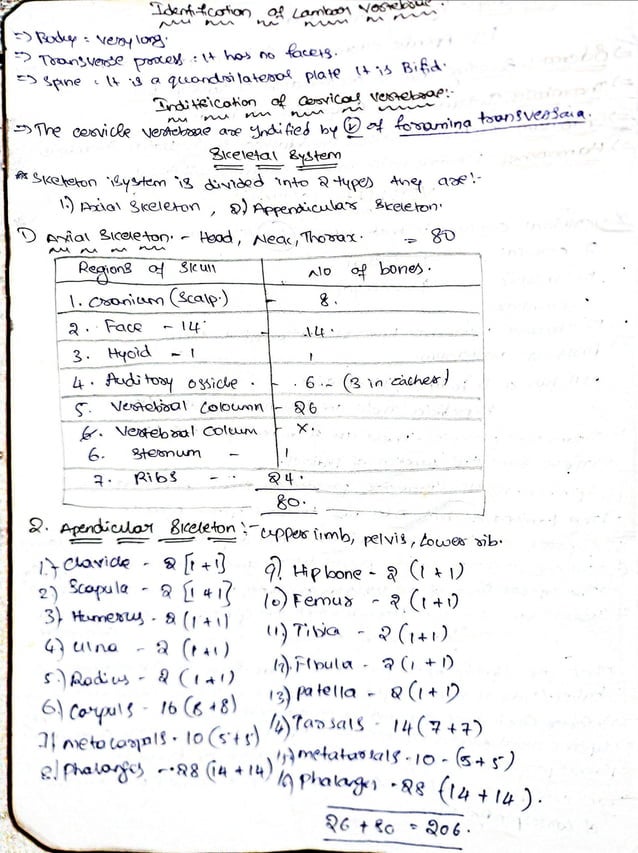 Identification of Lambar Vertebrae.
=> Body : very long.
=> Transverse process : It has no facets.
=> Spine : It is a quandrilateral plate It is Bifid.
Inditification of cervical vertebrae:-
=> The cervicle vertebrae are Indified by (v) of foramina transversaia.
Skeletal System
* Skeleton system is divided into 2 types they are :-
1.) Axial Skeleton, 2) Appendicular Skeleton.
1) Axial Skeleton. - Head, Neck, Thorax. = 80
Regions of Skull No of bones.
1. Cranium (Scalp.) - 8.
2. Face - 14 - 14.
3. Hyoid - 1 1
4. Auditory ossicle . - 6 - (3 in eacher)
5. Vertebral Coloumn - 26
6. Vertebral Colum - x.
6. Sternum - 1
7. Ribs - - 24.
80.
2. Apendicular Skeleton :- upper limb, pelvis, Lower rib.
1) Clavicle - 2 [1+1]
2) Scapula - 2 [1+1]
3) Humerus - 2 (1+1)
4) Ulna - 2 (1+1)
5) Radius - 2 (1+1)
6) Carpuls - 16 (8+8)
7) metocarpals - 10 (5+5)
8) Phalanges - 28 (14+14)
9) Hip bone - 2 (1+1)
10) Femur - 2 (1+1)
11) Tibia - 2 (1+1)
12) Fibula - 2 (1+1)
13) Patella - 2 (1+1)
14) Tarsals - 14 (7+7)
15) metatarsals - 10 - (5+5)
16) phalanges - 28 (14+14).
26 + 80 = 206.